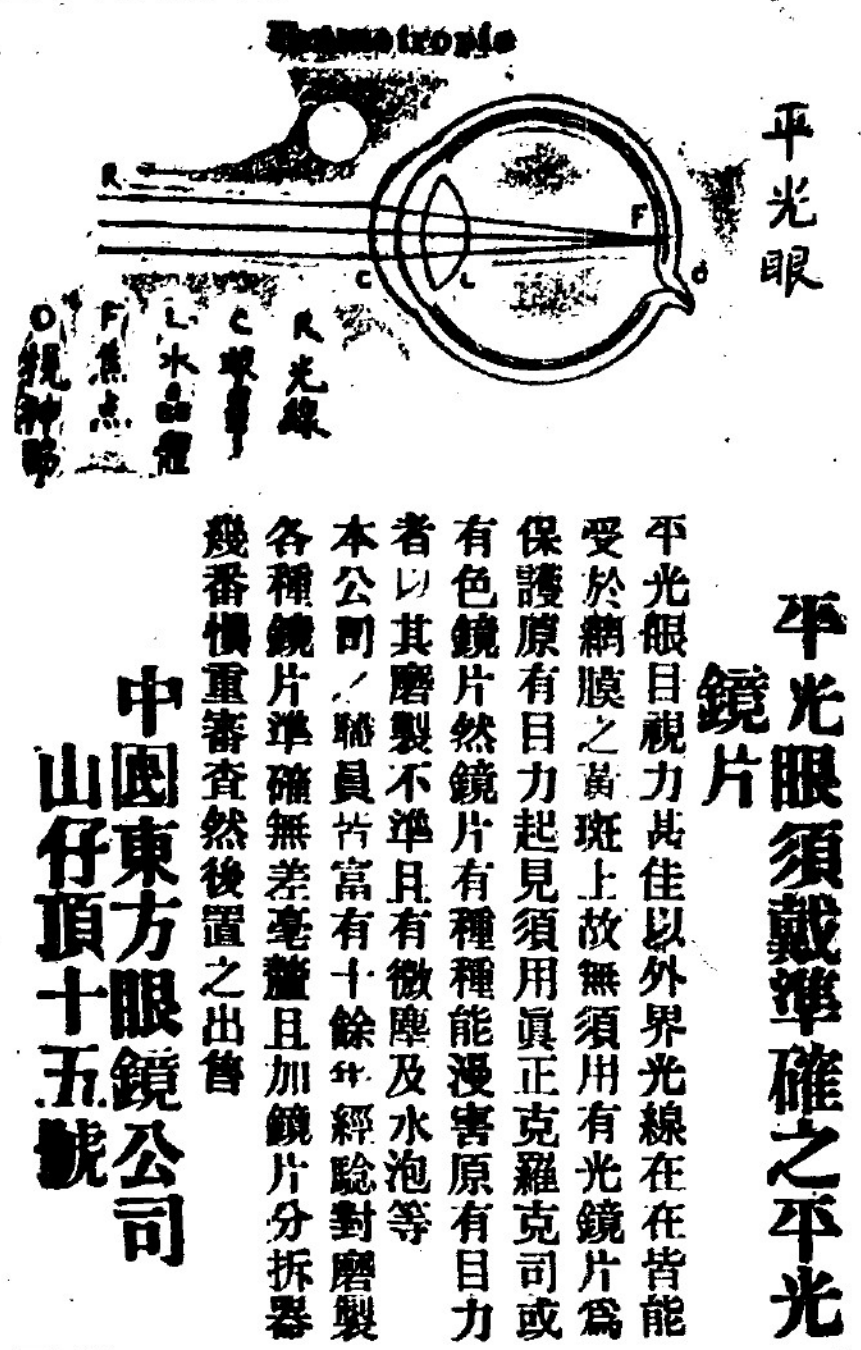 平光眼
R
F
C
L
O
R 光線
C
L 水晶體
F 焦点
O 視神
平光眼須戴準確之平光
鏡片
平光眼目視力甚佳以外界光線在在皆能
受於網膜之黃斑上故無須用有光鏡片爲
保護原有目力起見須用眞正克羅克司或
有色鏡片然鏡片有種種能漫害原有目力
者以其磨製不準且有微塵及水泡等
本公司之職員皆富有十餘年經驗對磨製
各種鏡片準確無差毫釐且加鏡片分拆器
幾番愼重審查然後置之出售
中國東方眼鏡公司
山仔頂十五號